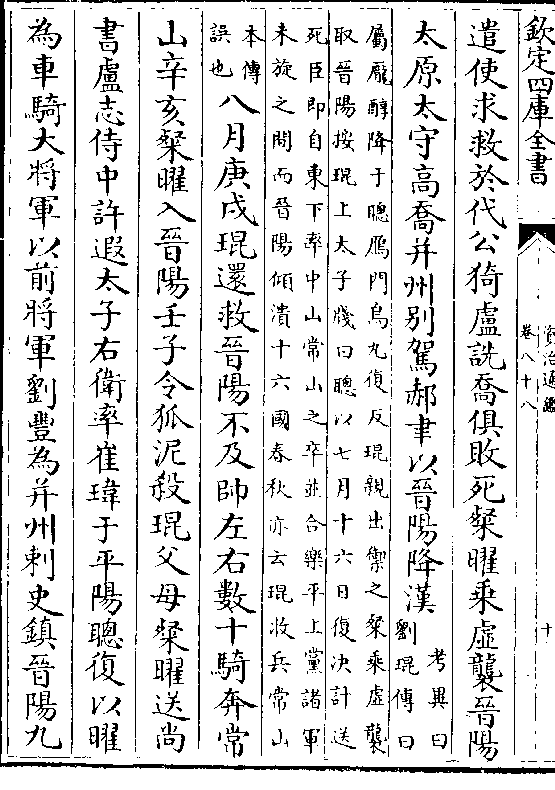 欽定四庫全書
資治通鑑
卷八十八
十
遣使求救於代公猗盧詵喬俱敗死粲曜乘虛襲晉陽
太原太守高喬并州别駕郝聿以晉陽降漢
考異曰
劉琨傳曰
屬龎醇降于聰鴈門烏丸復反琨親出禦之粲乘虛襲
取晉陽按琨上太子牋曰聰以七月十六日復決計送
死臣即自東下率中山常山之卒並合樂平上黨諸軍
未旋之間而晉陽傾潰十六國春秋亦云琨收兵常山
本傳
誤也
八月庚戌琨還救晉陽不及帥左右數十騎奔常
山辛亥粲曜入晉陽壬子令狐泥殺琨父母粲曜送尚
書盧志侍中許遐太子右衛率崔瑋于平陽聰復以曜
為車騎大將軍以前將軍劉豐為并州刺史鎮晉陽九